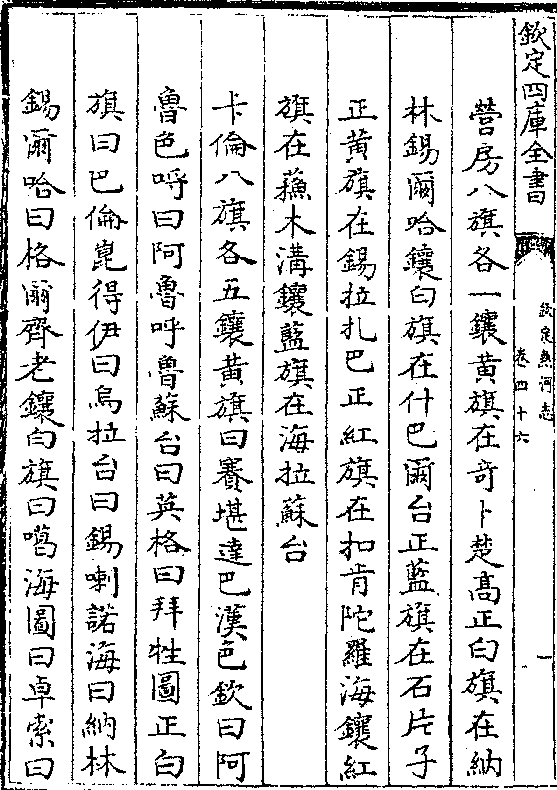 欽定四庫全書
欽定熱河志
卷四十六
一
營房八旗各一鑲黃旗在奇卜楚髙正白旗在納
林錫爾哈鑲白旗在什巴爾台正藍旗在石片子
正黃旗在錫拉扎巴正紅旗在扣肯陀羅海鑲紅
旗在蘓木溝鑲藍旗在海拉蘇台
卡倫八旗各五鑲黃旗曰賽堪達巴漢色欽曰阿
魯色呼曰阿魯呼魯蘇台曰英格曰拜牲圖正白
旗曰巴倫崑得伊曰烏拉台曰錫喇諾海曰納林
錫爾哈曰格爾齊老鑲白旗曰噶海圖曰卓索曰